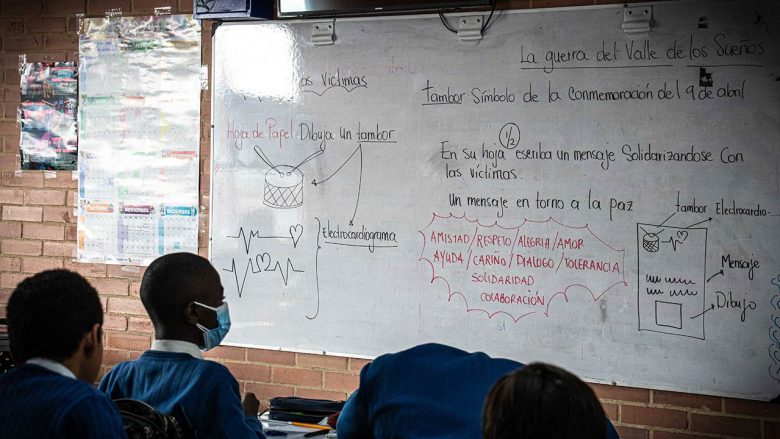 as Victimas
Hoja de Papel Dibuja un tambor
Electrocardiograma
La guerra del Valle de los Sueños
tambor Símbolo de la Conmemoración del 9 de abril
1/2
En su hoja escriba un mensaje Solidarizandose Con
las víctimas.
Un mensaje en torno a la paz
AMISTAD/RESPETO/ALEGRIA/AMOR
AYUDA/CARIÑO/DIALOGO/TOLERANCIA
SOLIDARIDAD
COLABORACIÓN
tambor
Electrocardio-
Mensaje
Dibujo
NOVIEMBRE
DICIEMBRE